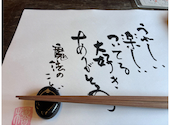 うれしい
楽しい
ついてる
大好き
ありがとう
魔法の
ことば